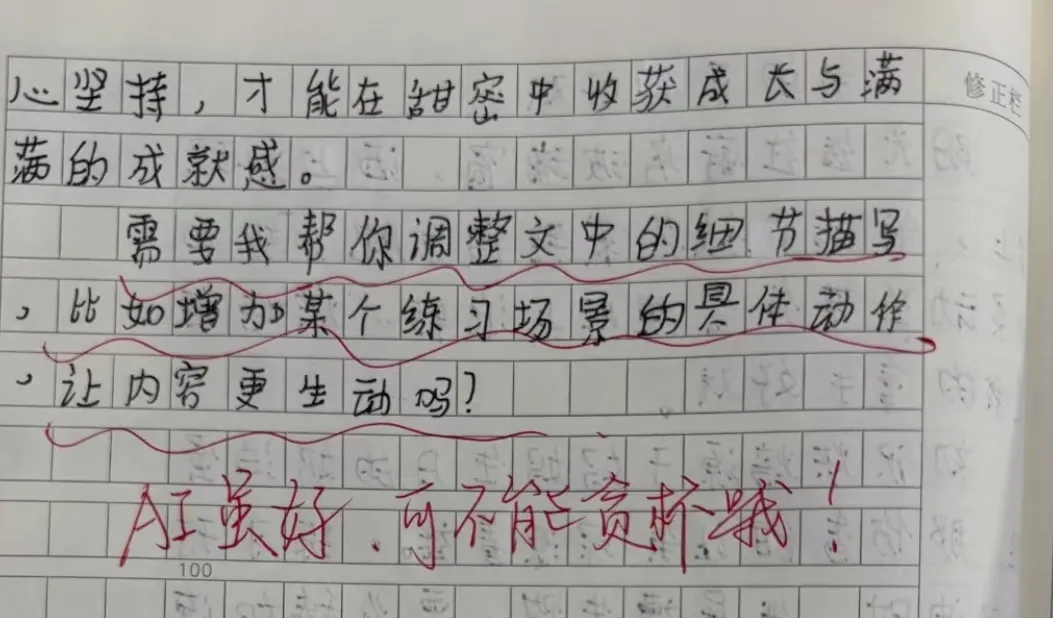 心坚持，才能在甜密中收获成长与满
修正栏
满的成就感。
需要我帮你调整文中的细节描写
，比如增加某个练习场景的具体动作
，让内容更生动吗？
AI虽好，可不能贪杯哦！
100